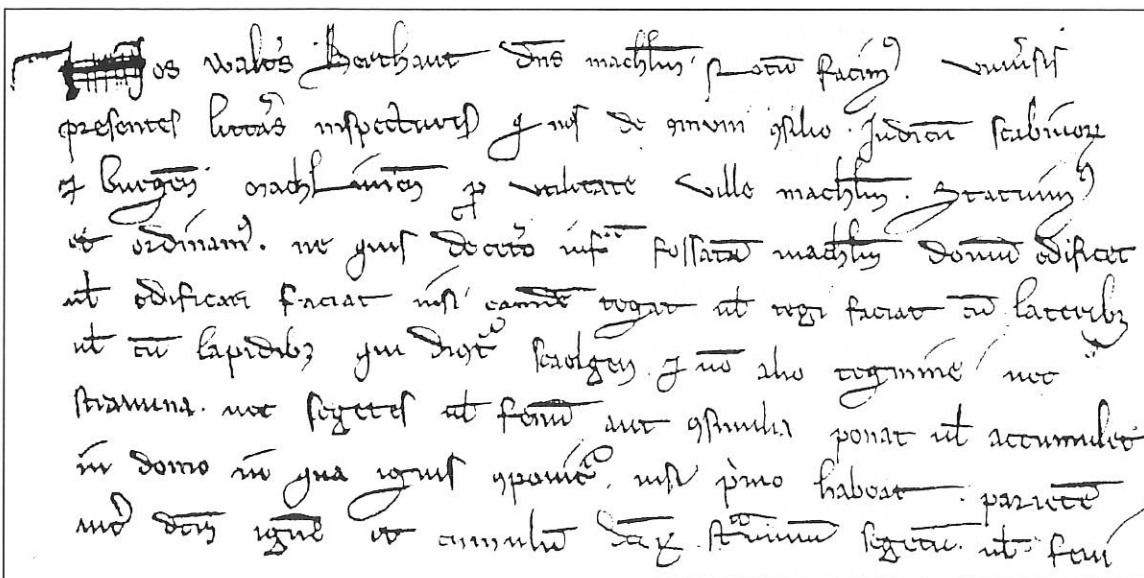 Nos Walt's Berthaut dns machlin notu facim9 univ'sis
presentes litt'as inspecturis q nos de 9muni 9silio. Judicu scabinor
et burgen machlinien p utilitate ville machlin. Statuim9
et ordinam9. ne quis decet'o infra fossata machlin domu edificet
ul edificari faciat nisi eamde tegat ul tegi faciat cu lateribz
ul cu lapidibz qui dicut' scaelgen. et no alio tegmine nec
stramina. nec segetes ul fenu aut 9similia ponat ul accumulet
in domo in qua ignis 9ponit'. nisi p'mo habeat pariete
int' dcm igne et cumulu dcor straminu segetu. ul feni